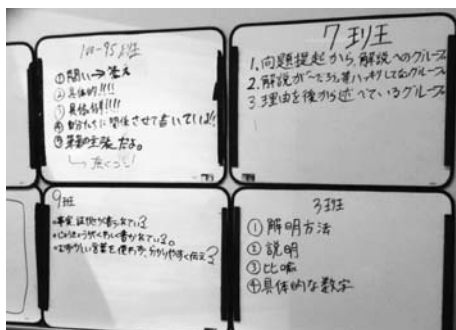 ①問い→答え
②具体的!!!!
③具体例!!!!
④自分たちに関係させて書いている!!
⑤筆者の主張だよ。
7班王
1.問題提起から、解説へのグループ
2.解説が
3.理由を後から述べているグループ
9班
•事実、証拠が書かれている
•じょうきょうがくわしく書かれている。
•むずかしい言葉を使わず、分かりやすく伝える
3班
①解明方法
②説明
③比喩
④具体的な数字